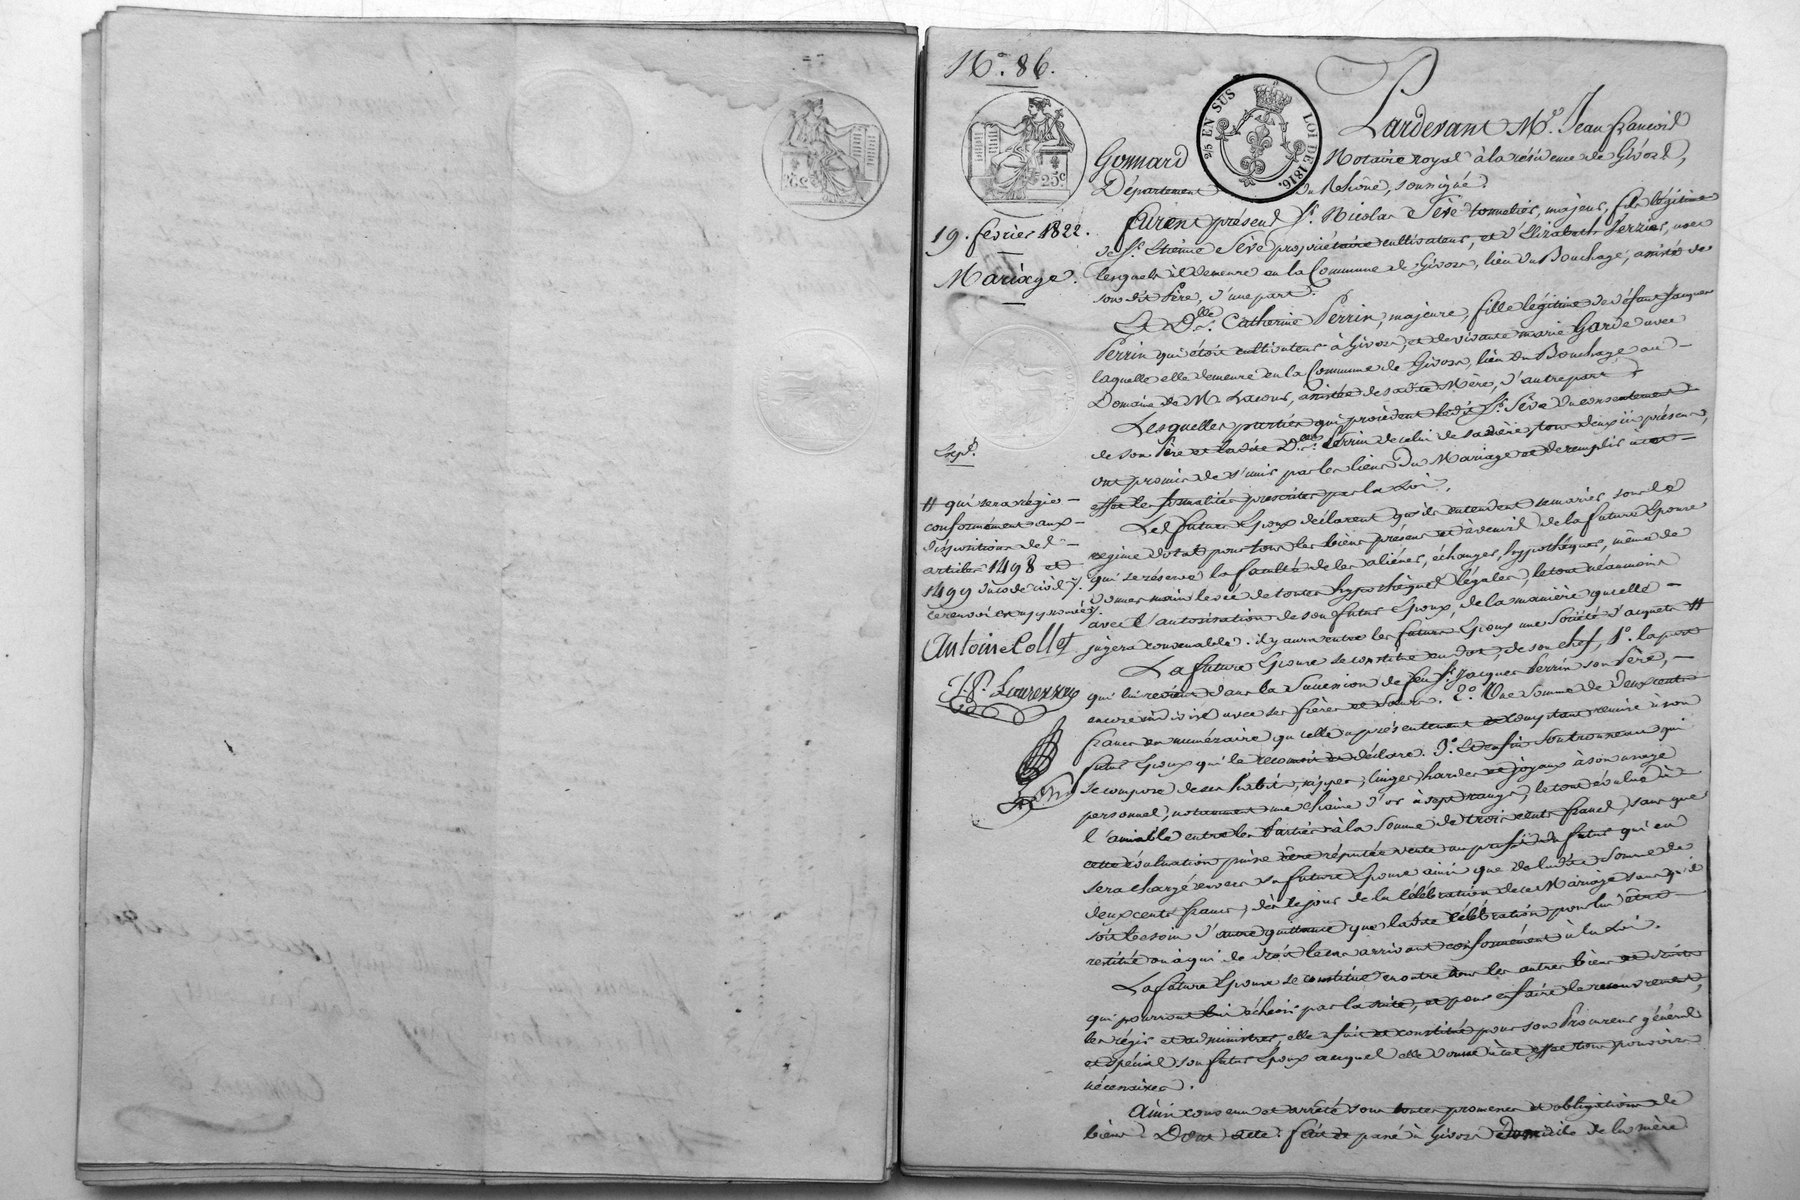 N.° 86.
2/5 EN SUS
LOI DE 1816.
25.c
19. février 1822.
Mariage.
Pardevant M.e Jean françois
Gonnard Notaire royal à la résidence de Givors,
Département du Rhône, soussigné.
furent présens S.r Nicolas Sève tonnelier, majeur, fils légitime
de S.r Etienne Sève propriétaire cultivateur, et d'Elizabeth Perrier, avec
lesquels il demeure en la Commune de Givors, lieu du Bouchage, assisté de
son dit Père, d'une part.
Et D.lle Catherine Perrin, majeure, fille légitime de défunt Jacques
Perrin qui étoit cultivateur à Givors, et de vivante marie Garde avec
laquelle elle demeure en la Commune de Givors, lieu du Bouchage au
Domaine de M. Lacour, assistée de sadite Mère, d'autre part.
Lesquelles parties qui procèdent ledit S.r Sève du consentement
de son Père et ladite D.lle Perrin de celui de sa mère, tous deux ici présens,
ont promis de s'unir par les liens du Mariage et de remplir à cet
effet les formalités prescrites par la Loi.
Les futurs Epoux déclarent qu'ils entendent se marier sous le
régime dotal pour tous les biens présens et à venir de la future Epouse
qui se réserve la faculté de les aliéner, échanger, hypothéquer, même de
donner main levée de toutes hypothèques légales, le tout néanmoins
avec l'autorisation de son futur Epoux, de la manière qu'elle
jugera convenable. il y aura entre les futurs Epoux une Société d'acquets #
Exp.d
# qui sera régie
conformément aux
dispositions des
articles 1498 et
1499 du code civil
le renvoi est approuvé
Antoine Collet
J. P. Laurenson
La future Epouse se constitue en dot, de son chef, 1.° la part
qui lui revient dans la Succession de feu S.r Jacques Perrin son Père,
encore indivise avec ses frères et sœurs. 2.° Une somme de deux cents
francs en numéraire qu'elle a présentement et comptant remise à son
futur Epoux qui le reconnoit et déclare. 3.° Et enfin son trousseau qui
se compose de ses habits, nippes, linges, hardes et joyaux à son usage
personnel, notamment une chaine d'or à sept rangs, le tout évalué à
l'amiable entre les Parties à la Somme de trois cents francs, sans que
cette évaluation puisse être réputée vente au profit du futur qui en
sera chargé envers sa future Epouse ainsi que de ladite Somme de
deux cents francs, dès le jour de la célébration de ce Mariage sans qu'il
soit besoin d'autre quittance que ladite célébration pour lui être
restitué ou à qui de droit le cas arrivant conformément à la Loi.
La future Epouse se constitue en outre tous les autres biens et droits
qui pourront lui échoir par la suite, et pour en faire le recouvrement,
les régir et administrer, elle a fait et constitué pour son Procureur général
et spécial son futur Epoux auquel elle donne à cet effet tous pouvoirs
nécessaires.
Ainsi convenu et arrêté sous toutes promesses et obligations de
biens. Dont acte: fait et passé à Givors domicile de la mère